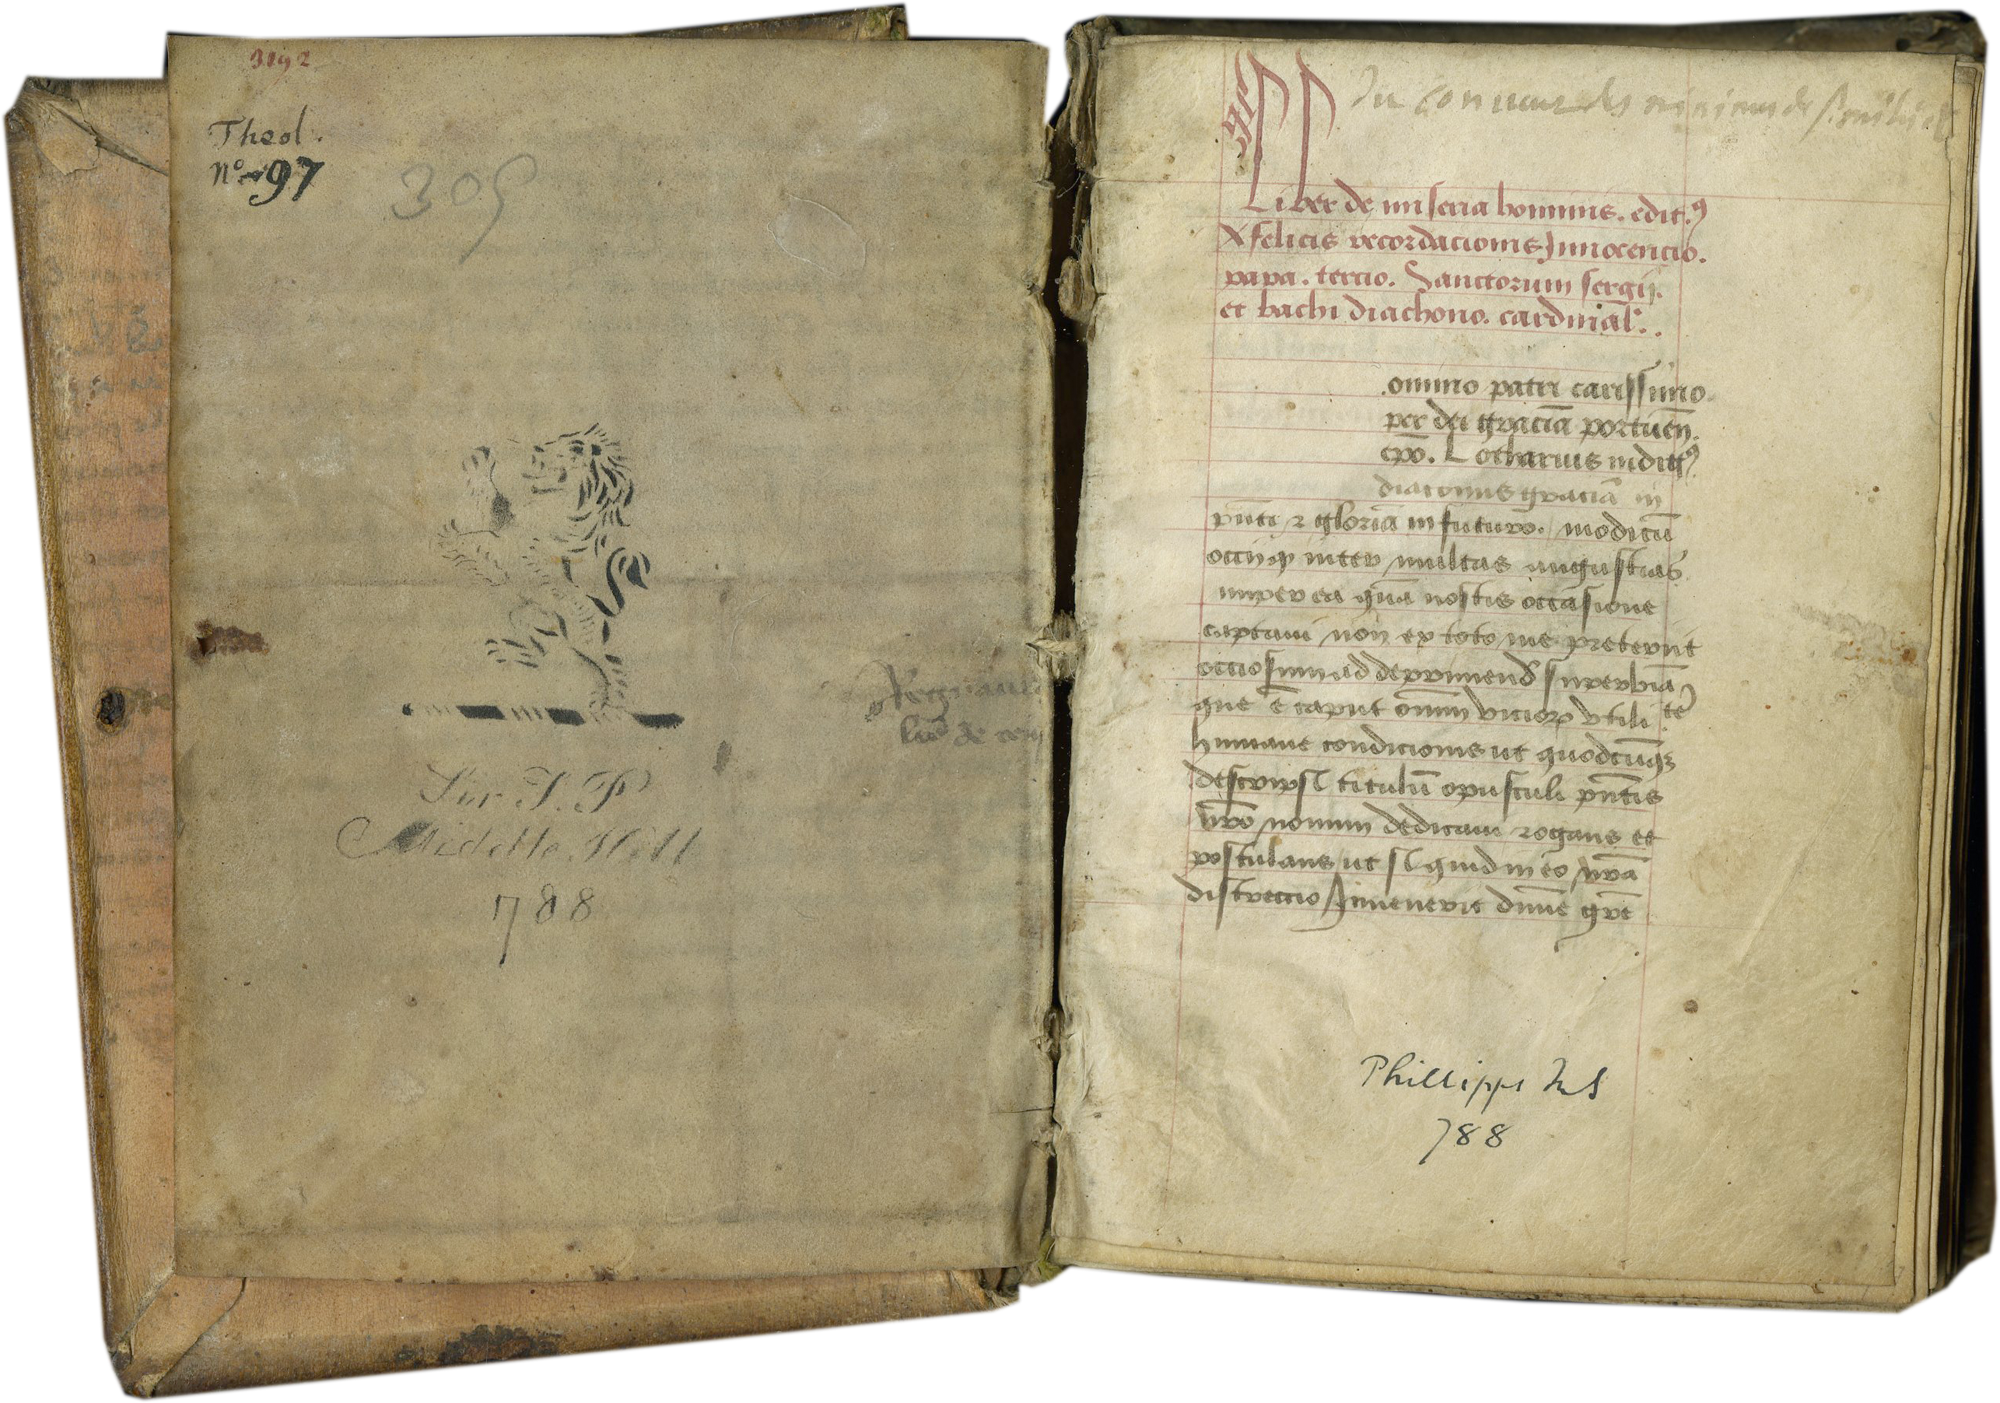 3192
Theol.
No 97
305
Sir T. P
Middle Hill
788
Regnaul
de
Du conuent des minimes de
Liber de miseria hominis. edit.ꝰ
X felicis recordacionis Jnnocencio.
papa. tercio. Sanctorum sergij.
et bachi diachono. cardinal̄.
.omino patri carissimo.
per dei graciā portuēn.
ep̄o. Lotharius indiḡꝰ
diaconus graciā in
pn̄ti ⁊ gloriā in futuro. modicū
ocij qḋ inter multas angustias
nuper ea quā nostis occasione
captaui non ex toto me preteriit
occiosum ad deprimend̄ superbiā
que ē caput om̄m vicioꝝ vtilitē
humane condicionis ut quodcūqꝫ
descripsi titulū opusculi pn̄tis
vr̄o nomini dedicaui rogans et
postulans ut si quid in eo vr̄a
discreccio Jnuenerit diuine gr̄e
Phillipps MS
788